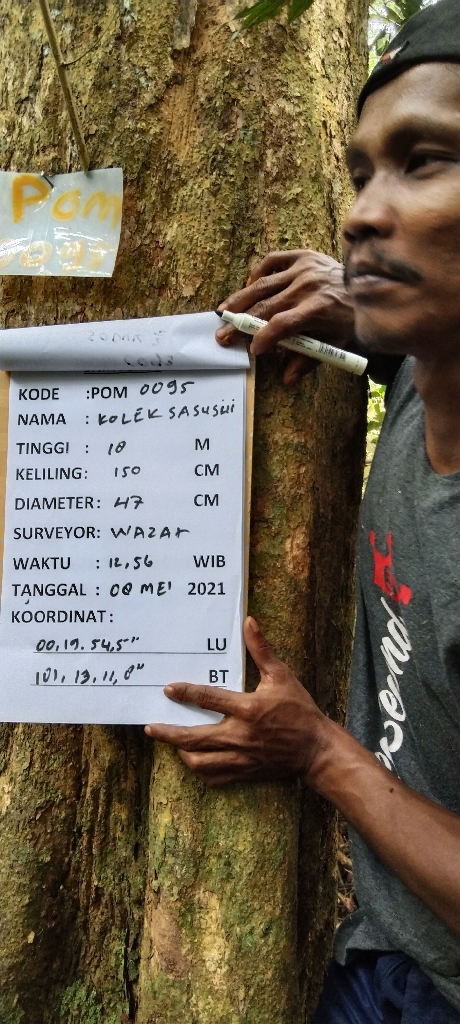 POM
0095
KODE :POM 0095
NAMA : KOLEK SASUSUI
TINGGI : 18 M
KELILING: 150 CM
DIAMETER: 47 CM
SURVEYOR: WAZAR
WAKTU : 12,56 WIB
TANGGAL : 08 MEI 2021
KOORDINAT:
00,19.54,5" LU
101,13,11,8" BT